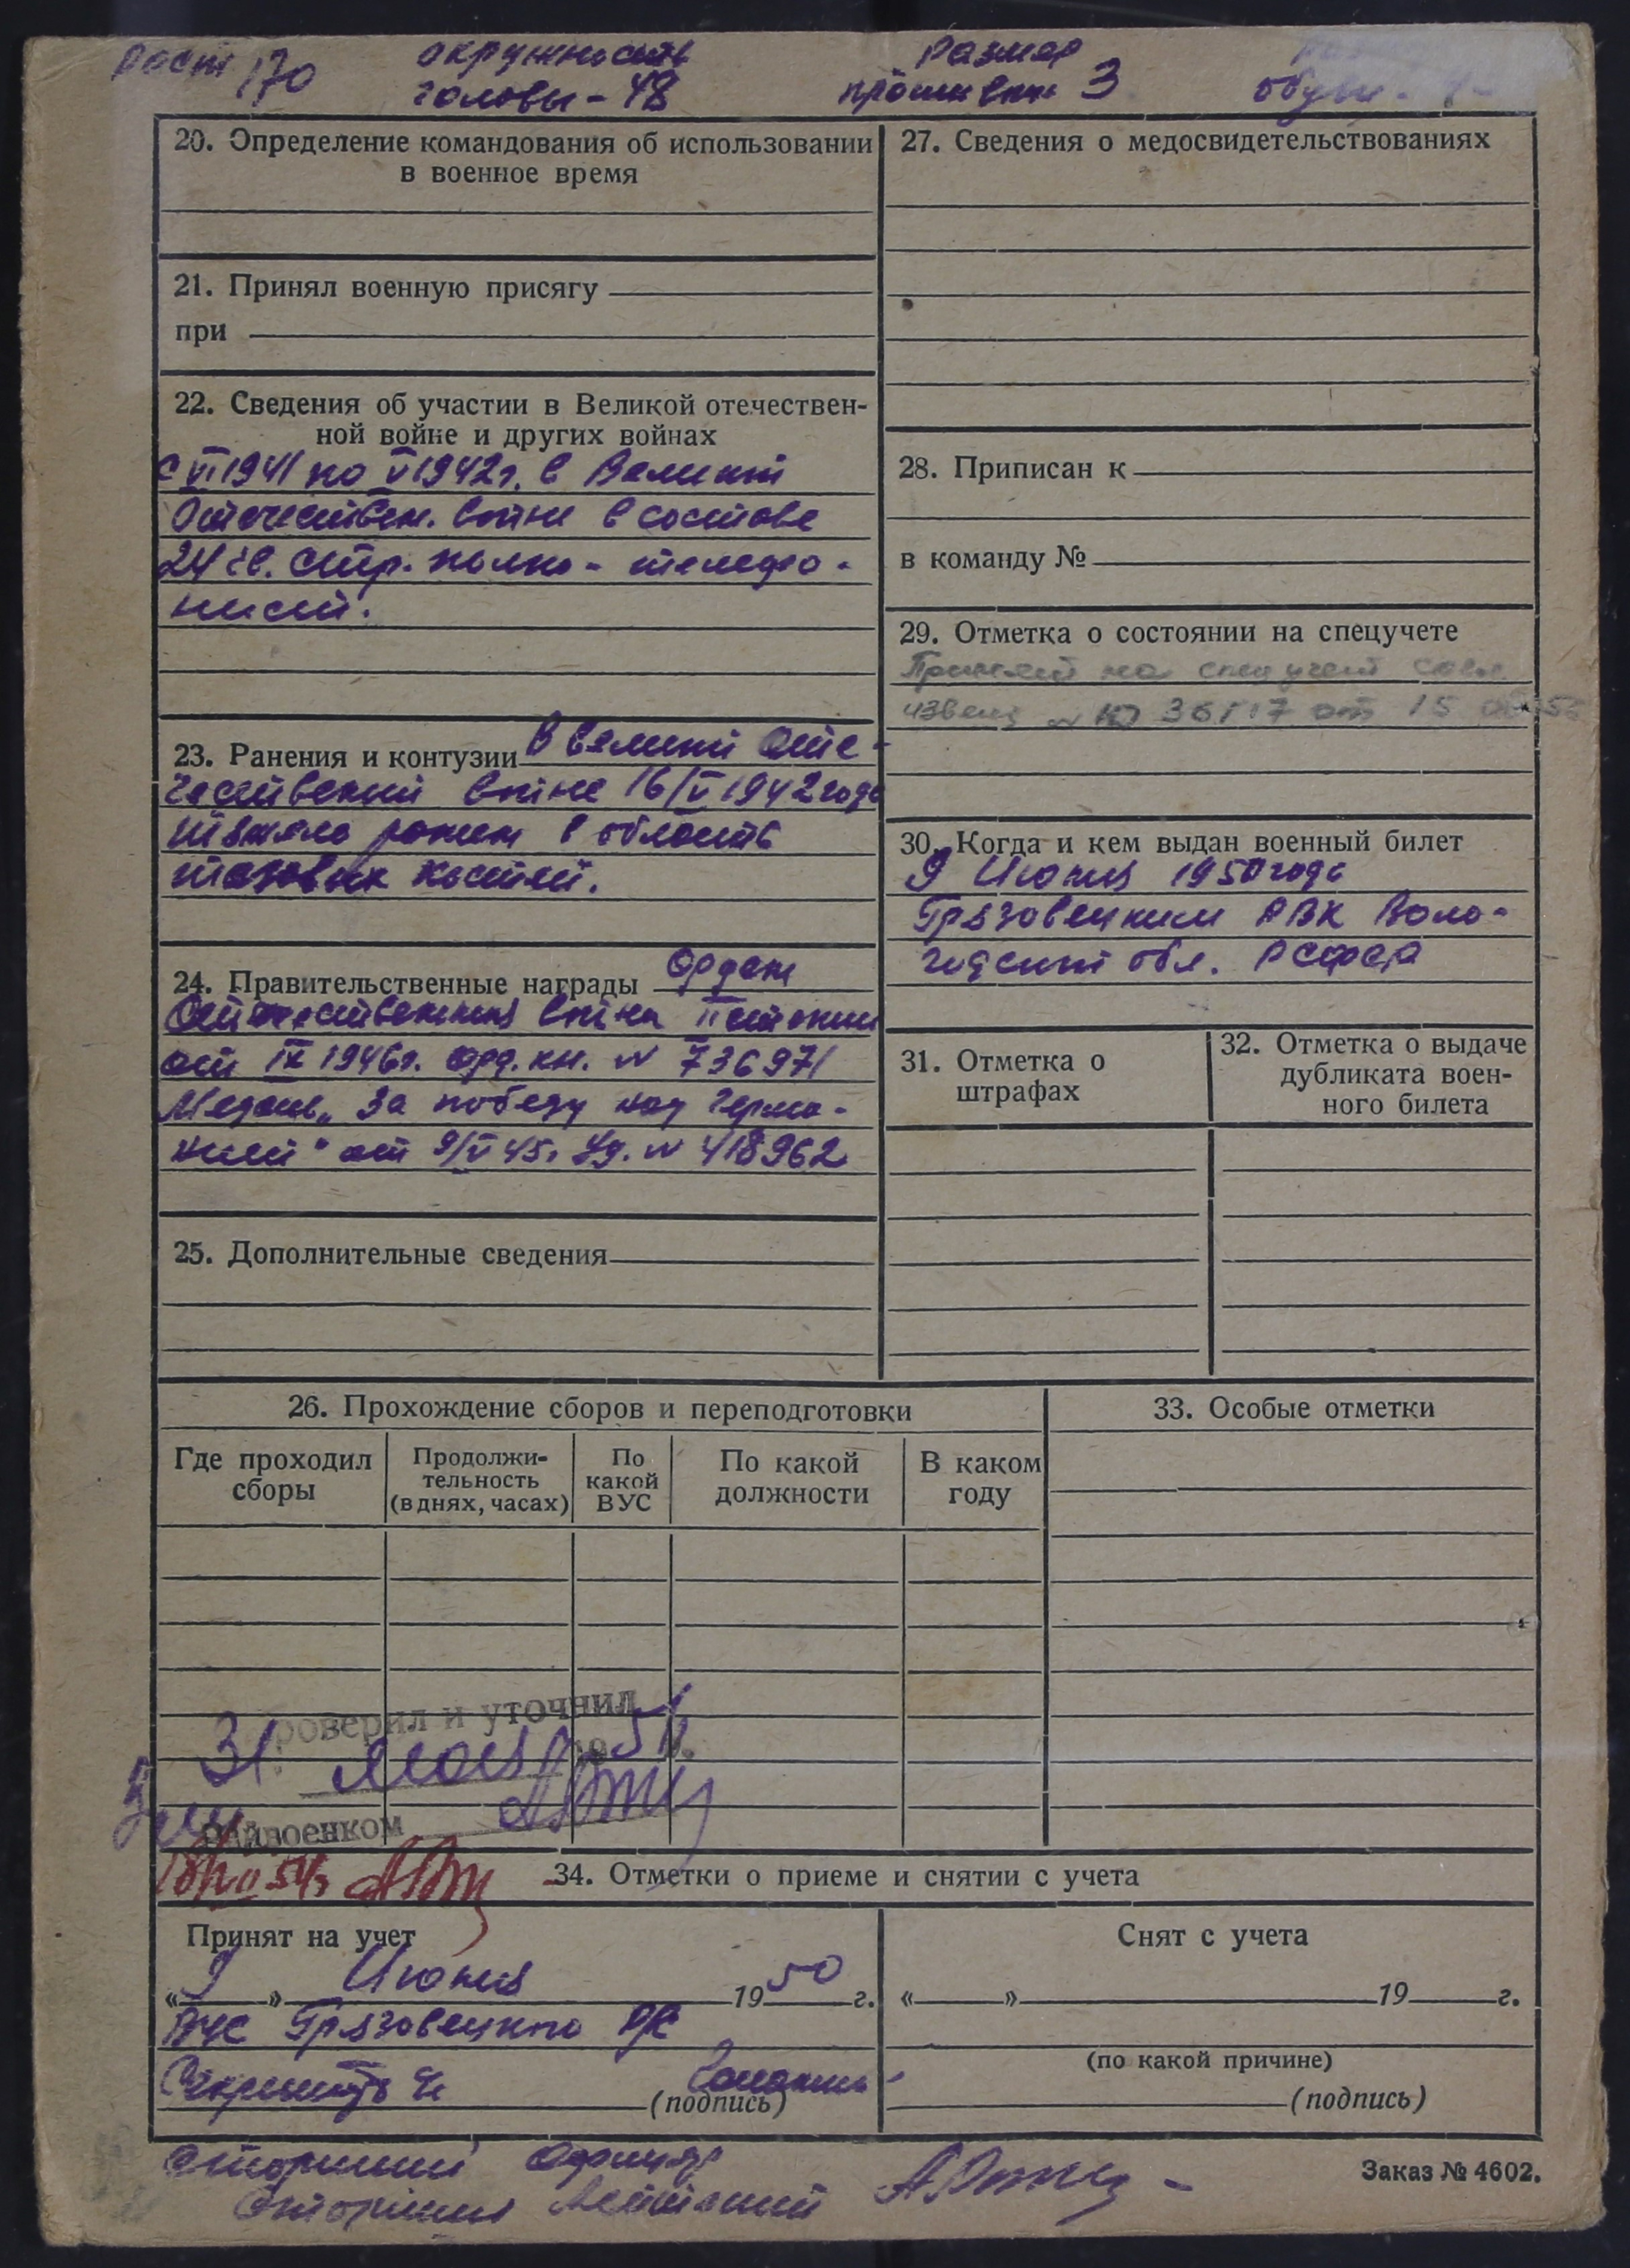 Рост 170
окружность
головы - 48
Размер
противог. 3
обуви -
20. Определение командования об использовании
в военное время
21. Принял военную присягу
при
22. Сведения об участии в Великой отечествен-
ной войне и других войнах
с VI 1941 по V 1942 г. в Великой
Отечествен. войне в составе
24 гв. стр. полка - телефо-
нист.
23. Ранения и контузии В великой Оте-
чественной войне 16/V 1942 года
тяжело ранен в область
тазовых костей.
24. Правительственные награды Орден
Отечественная война II степени
от IX 1946 г. орд. кн. № 736971
Медаль „За победу над Герма-
нией" от 9/V 45 г. Уд. № 418962
25. Дополнительные сведения
27. Сведения о медосвидетельствованиях
28. Приписан к
в команду №
29. Отметка о состоянии на спецучете
Принят на спецучет
извещ № 36117 от 15
30. Когда и кем выдан военный билет
9 Июня 1950 года
Грязовецким РВК Воло-
годской обл. РСФСР
31. Отметка о
штрафах
32. Отметка о выдаче
дубликата воен-
ного билета
26. Прохождение сборов и переподготовки
Где проходил
сборы
Продолжи-
тельность
(в днях, часах)
По
какой
ВУС
По какой
должности
В каком
году
33. Особые отметки
роверил и уточнил
31. мая 1951 г.
Райвоенком
34. Отметки о приеме и снятии с учета
Принят на учет
«9» Июня 1950 г.
ВУС Грязовецкого Р/С
Секретарь
(подпись)
Снят с учета
«» 19 г.
(по какой причине)
(подпись)
Старший Офицер
Старший Лейтенант
Заказ № 4602.